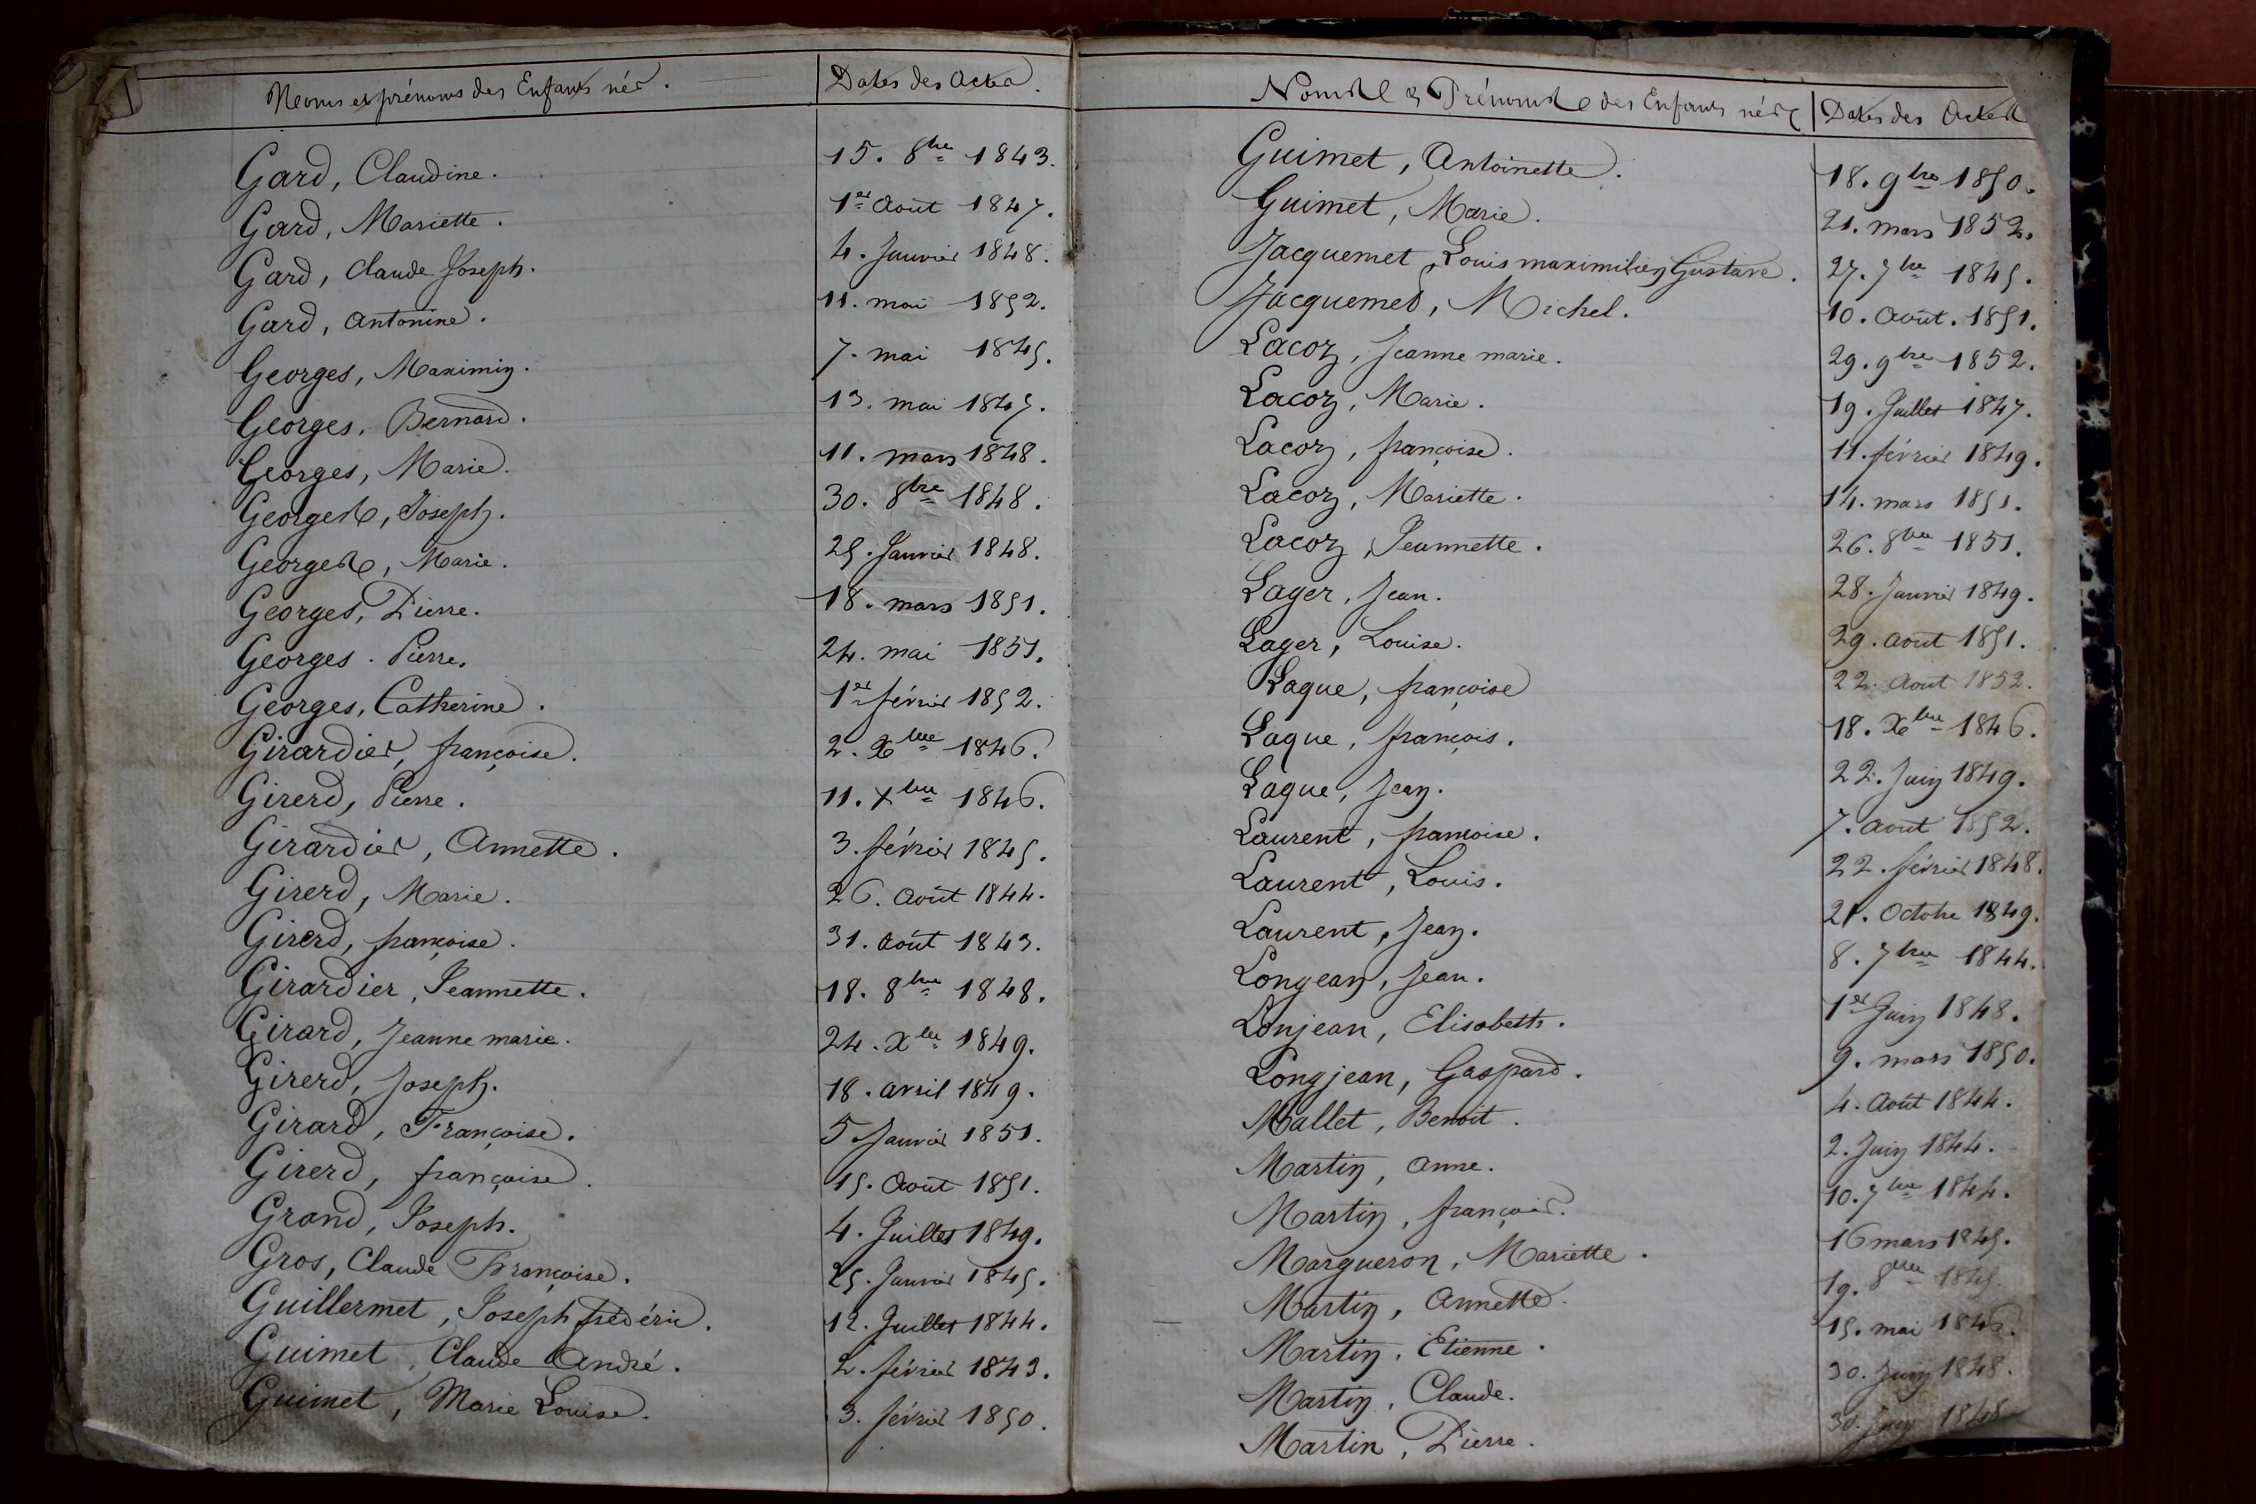 Noms et prénoms des Enfants nés. Dates des Actes.
Gard, Claudine. 15. 8bre 1843.
Gard, Mariette. 1er Août 1847.
Gard, Claude Joseph. 4. Janvier 1848.
Gard, Antonine. 11. mai 1852.
Georges, Maximin. 7. mai 1845.
Georges, Bernard. 13. mai 1847.
Georges, Marie. 11. mars 1848.
Georges, Joseph. 30. 8bre 1848.
Georges, Marie. 25. Janvier 1848.
Georges, Pierre. 18. mars 1851.
Georges. Pierre. 24. mai 1851.
Georges, Catherine. 1er février 1852.
Girardier, françoise. 2. Xbre 1846.
Girerd, Pierre. 11. Xbre 1846.
Girardier, Annette. 3. février 1845.
Girerd, Marie. 26. Août 1844.
Girerd, françoise. 31. Août 1843.
Girardier, Jeannette. 18. 8bre 1848.
Girard, Jeanne marie. 24. Xbre 1849.
Girerd, Joseph. 18. avril 1849.
Girard, Françoise. 5 Janvier 1851.
Girerd, françoise. 15. Août 1851.
Grand, Joseph. 4. Juillet 1849.
Gros, Claude Françoise. 25. Janvier 1845.
Guillermet, Joseph frédéric. 12. Juillet 1844.
Guimet, Claude André. 2. février 1843.
Guimet, Marie Louise. 3. février 1850.
Noms & Prénoms des Enfants nés Dates des Actes
Guimet, Antoinette. 18. 9bre 1850.
Guimet, Marie. 21. mars 1852.
Jacquemet, Louis maximilien Gustave. 27. 7bre 1845.
Jacquemet, Michel. 10. Août. 1851.
Lacoz, Jeanne marie. 29. 9bre 1852.
Lacoz, Marie. 19. Juillet 1847.
Lacoz, françoise. 11. février 1849.
Lacoz, Mariette. 14. mars 1851.
Lacoz, Jeannette. 26. 8bre 1851.
Lager, Jean. 28. Janvier 1849.
Lager, Louise. 29. août 1851.
Laque, françoise 22. Août 1852.
Laque, françois. 18. Xbre 1846.
Laque, Jean. 22. Juin 1849.
Laurent, françoise. 7. Août 1852.
Laurent, Louis. 22. février 1848.
Laurent, Jean. 21. Octobre 1849.
Longean, Jean. 8. 7bre 1844.
Lonjean, Elisabeth. 1er Juin 1848.
Longjean, Gaspard. 9. mars 1850.
Mallet, Benoit. 4. Août 1844.
Martin, Anne. 2. Juin 1844.
Martin, françois. 10. 7bre 1844.
Margueron, Mariette. 16 mars 1845.
Martin, Annette. 19. 8bre 1845.
Martin, Etienne. 15. mai 1846.
Martin, Claude. 30. Juin 1848.
Martin, Pierre. 30. Juin 1848